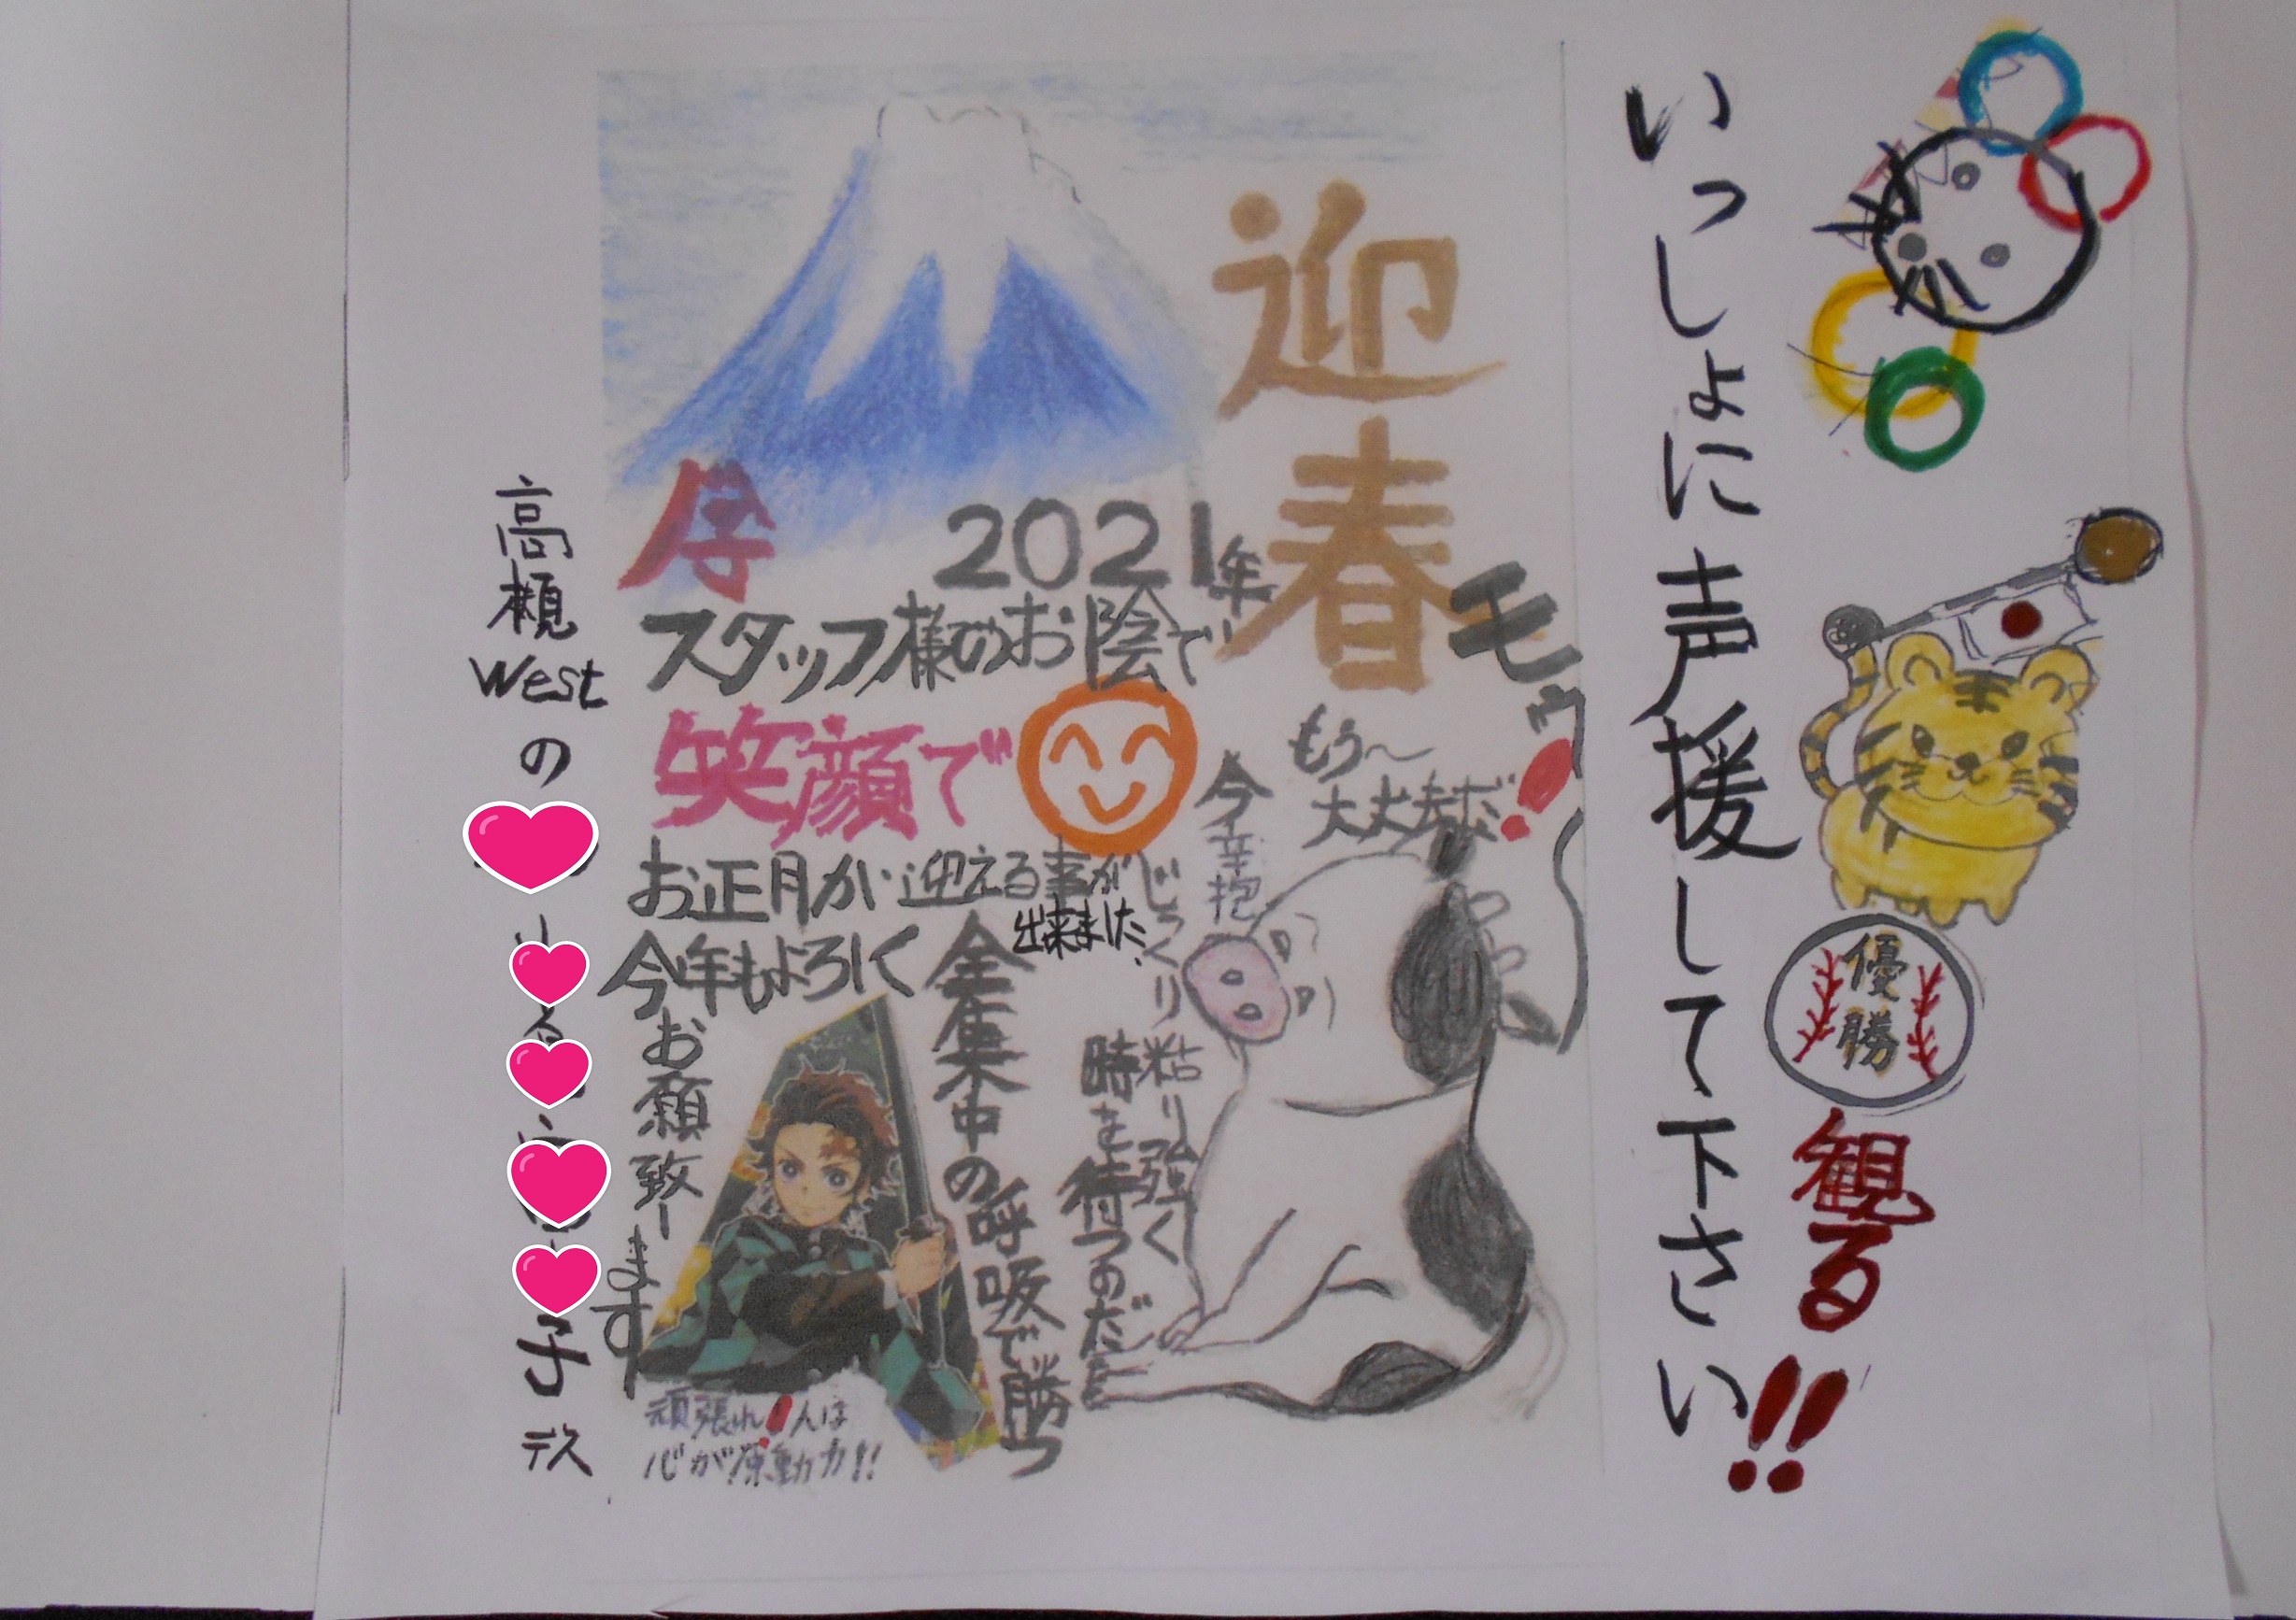 いっしょに声援して下さい!!
優勝
観る
迎春
モゥ!
2021年
スタッフ様のお陰で
笑顔で
お正月が迎える事が
出来ました。
今年もよろしく
お願い致します
もう〜
大丈夫だ
今辛抱
じっくり粘り強く
時を待つのだ
全集中の呼吸で勝つ
心が原動力!!
高瀬
West
の
子